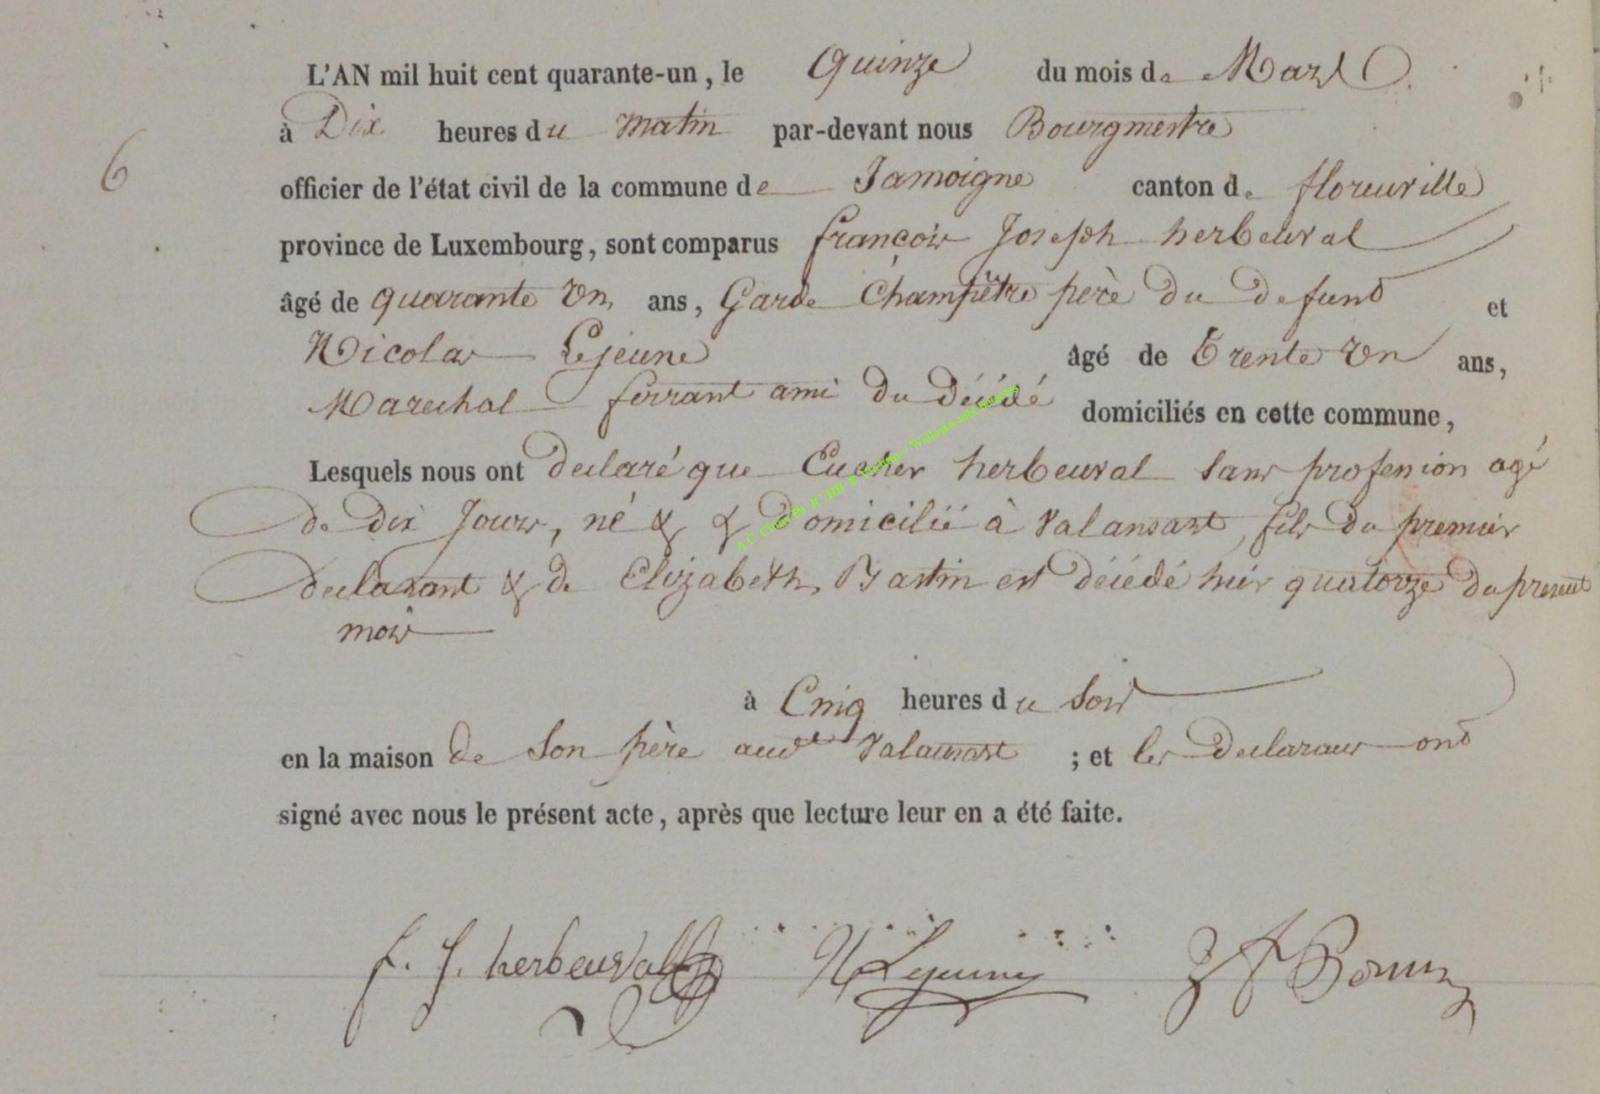 L'AN mil huit cent quarante-un, le Quinze du mois de Mars
à Dix heures du matin par-devant nous Bourgmestre
6
officier de l'état civil de la commune de Jamoigne canton de floreuville
province de Luxembourg, sont comparus françois Joseph herbeuval
âgé de quarante Un ans, Garde Champêtre père du defunt et
Nicolas Lejeune âgé de Trente Un ans,
Marechal ferrant ami du décédé domiciliés en cette commune,
Lesquels nous ont declaré que Eucher herbeuval sans profession agé
de dix Jours, né & & domicilié à Valansart, fils du premier
declarant & de Elizabéth Bastin est décédé hier quatorze du present
mois
à Cinq heures du soir
en la maison de son père aud.t Valansart ; et les declarans ont
signé avec nous le présent acte, après que lecture leur en a été faite.
f. J. herbeuval N Lejeune